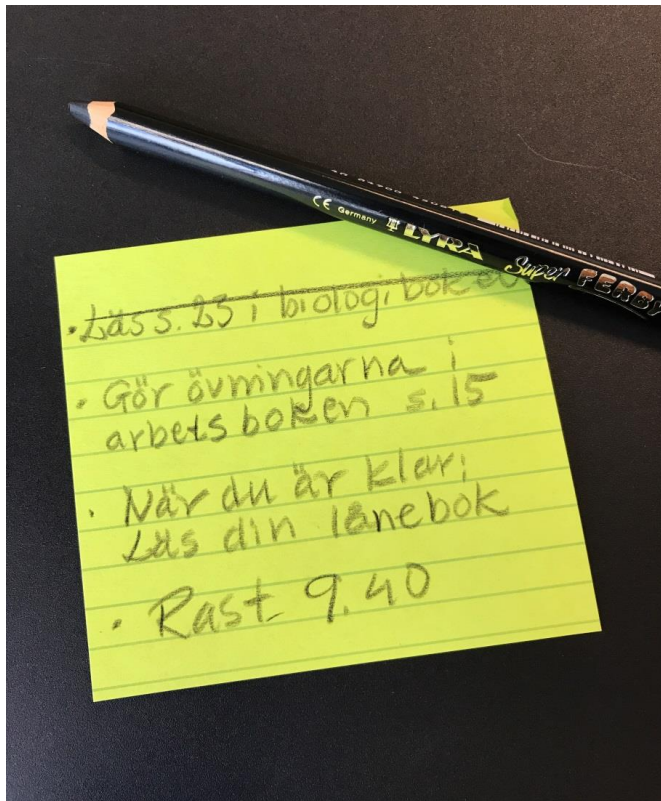 CE Germany LYRA Super FERBY
· Läs s. 23 i biologiboken
· Gör övningarna i
arbetsboken s. 15
· När du är klar;
Läs din lånebok
· Rast 9.40